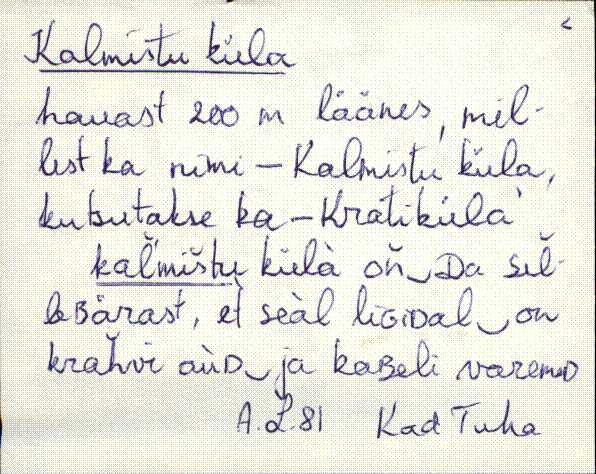 Kalmistu küla
hauast 200 m läänes, mil-
lest ka nimi – Kalmistu küla,
kutsutakse ka – Kratiküla
kal̆'mištu külà oň‿Da sel̆-
leBärast, et̀ seàl lìGiDal‿on
krahvi aùD‿ja kaBeli varemeD
A.L. 81 Kad Tuha